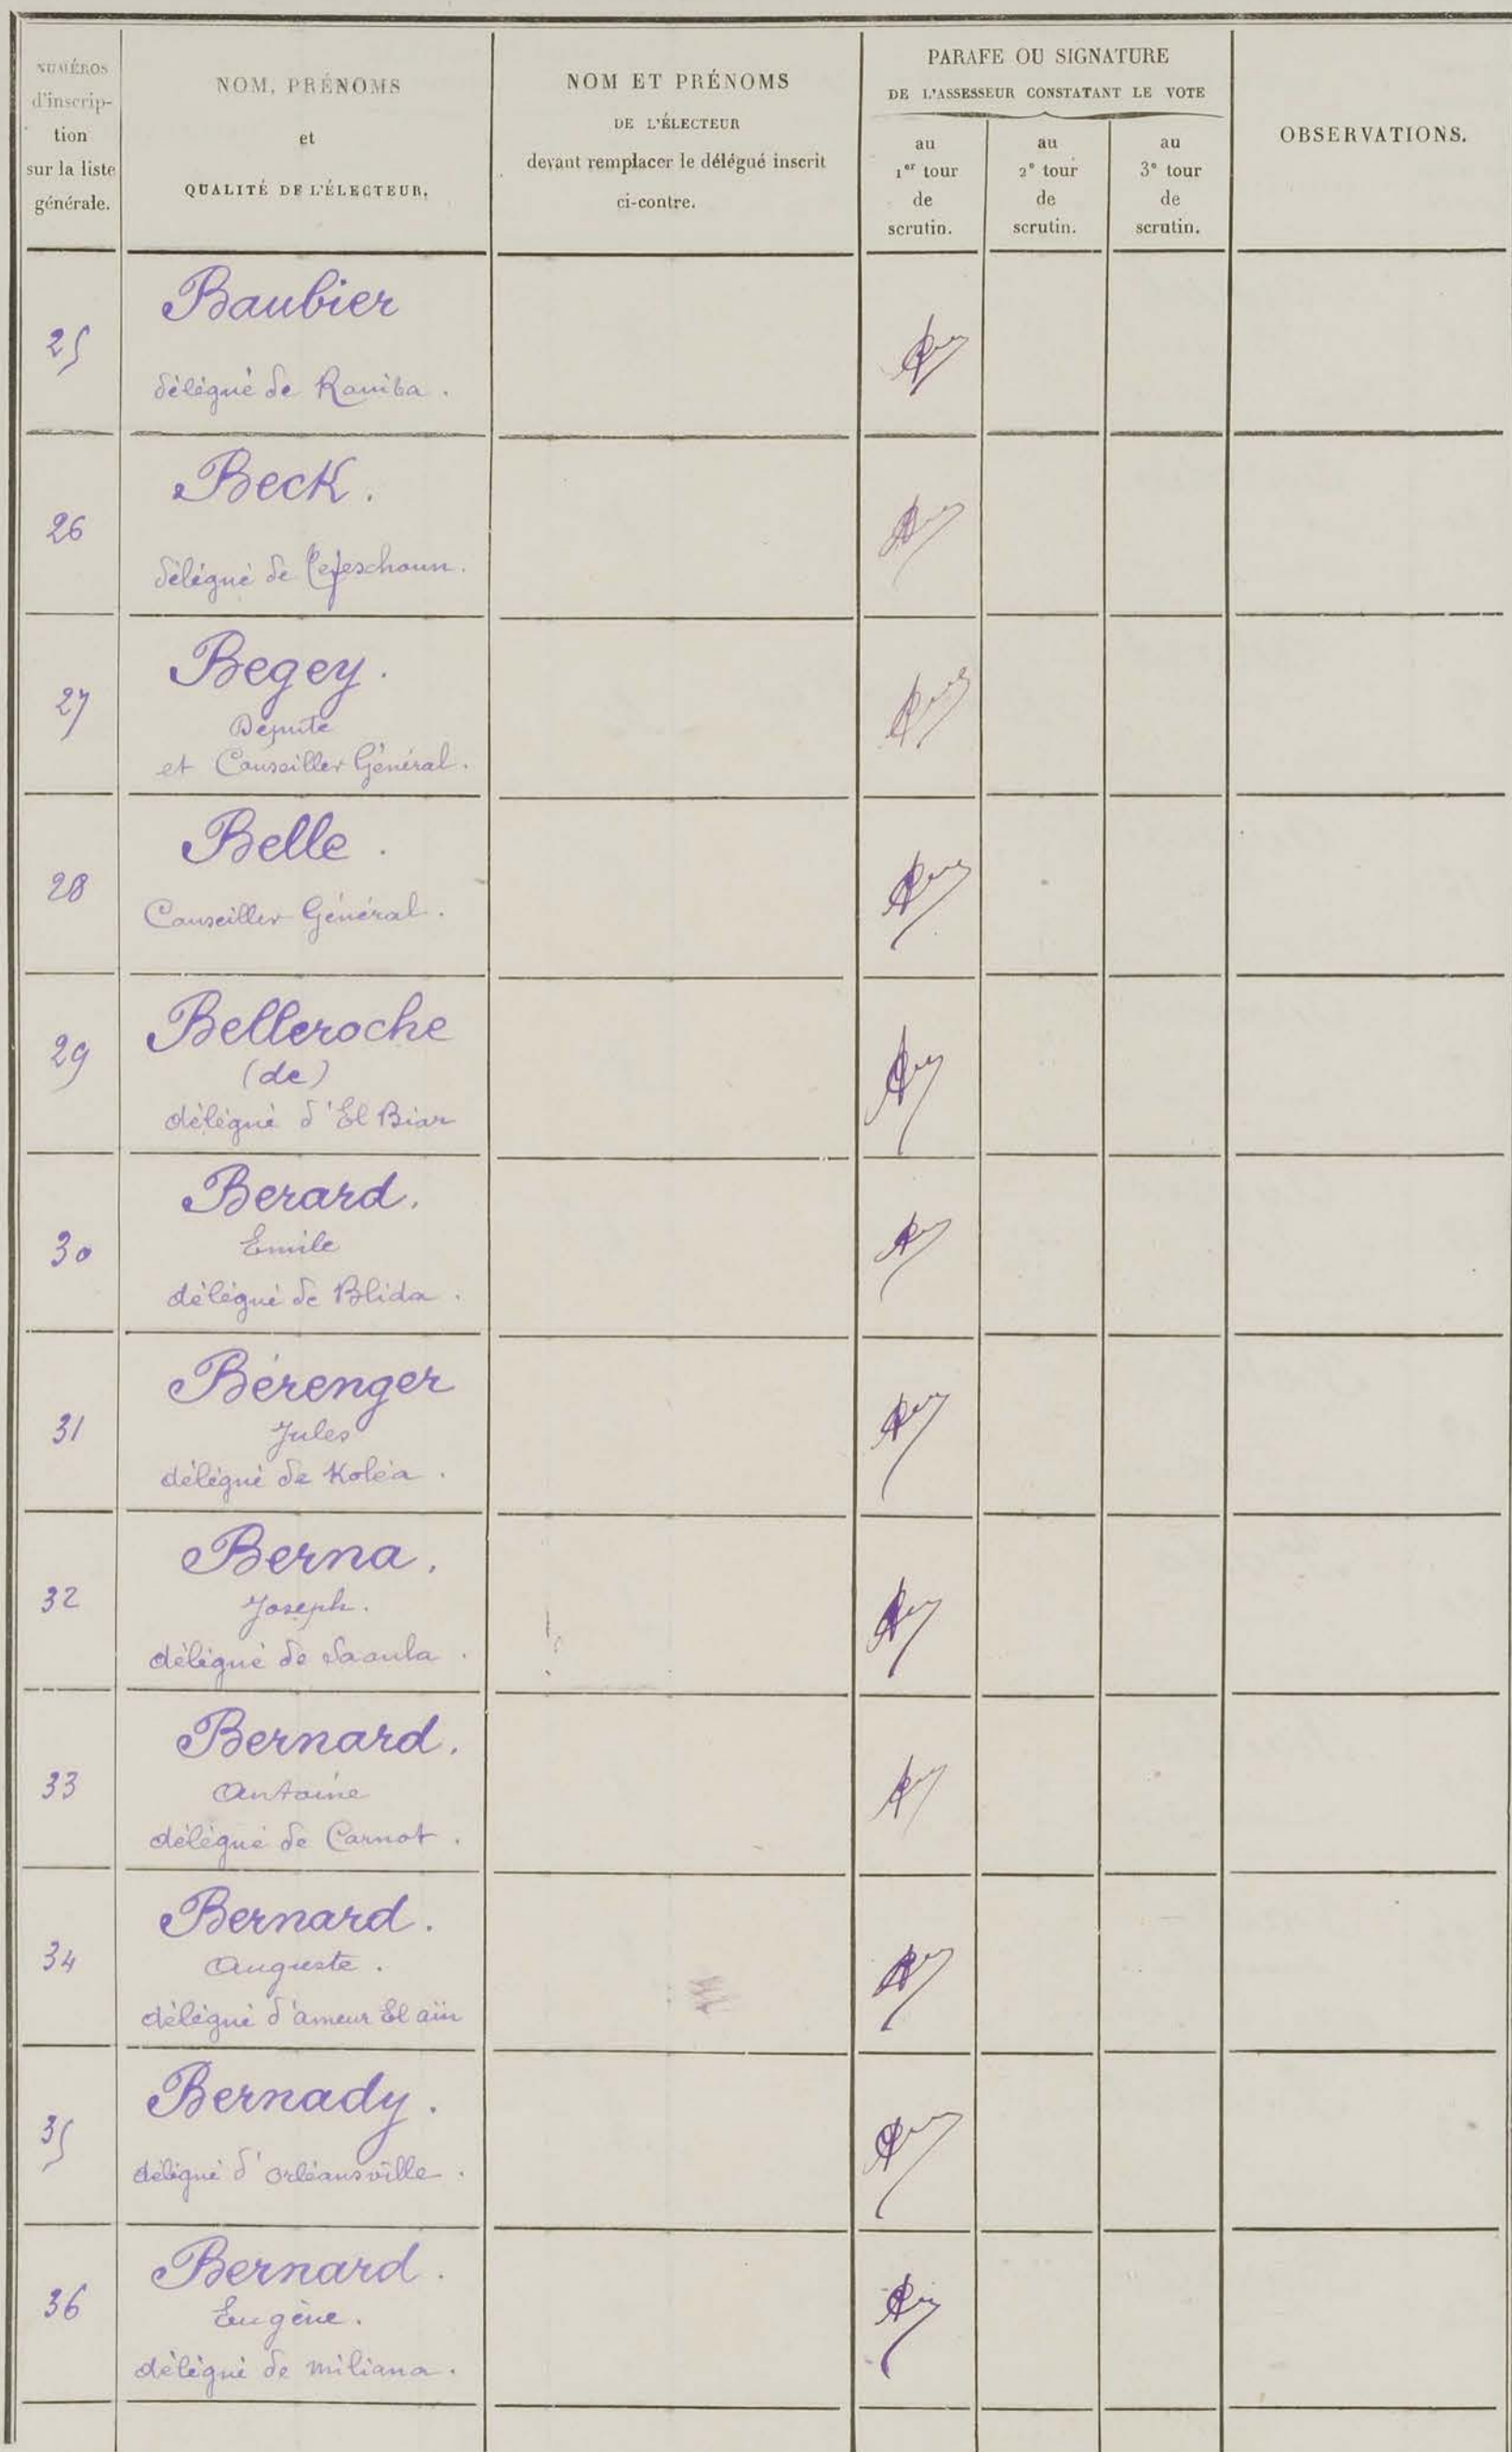 NUMÉROS
d'inscrip-
tion
sur la liste
générale.
NOM, PRÉNOMS
et
QUALITÉ DE L'ÉLECTEUR.
NOM ET PRÉNOMS
DE L'ÉLECTEUR
devant remplacer le délégué inscrit
ci-contre.
PARAFE OU SIGNATURE
DE L'ASSESSEUR CONSTATANT LE VOTE
au
1er tour
de
scrutin.
au
2e tour
de
scrutin.
au
3e tour
de
scrutin.
OBSERVATIONS.
25
Baubier
délégué de Rouïba.
26
Beck.
délégué de Tefeschoun.
27
Begey.
Député
et Conseiller Général.
28
Belle.
Conseiller Général.
29
Belleroche
(de)
délégué d'El Biar
30
Berard.
Emile
délégué de Blida.
31
Bérenger
Jules
délégué de Koléa.
32
Berna.
Joseph.
délégué de Saoula.
33
Bernard.
Antoine
délégué de Carnot.
34
Bernard.
Auguste.
délégué d'ameur El aïn
35
Bernady.
délégué d'Orléansville.
36
Bernard.
Eugène.
délégué de miliana.